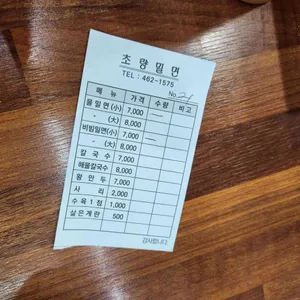 초량밀면
TEL : 462-1575
No. 21
메뉴 가격 수량 비고
물밀면(小) 7,000 —
〃 (大) 8,000
비빔밀면(小) 7,000 —
〃 (大) 8,000
칼국수 7,000
해물칼국수 8,000
왕만두 7,000
사리 2,000
수육1점 1,000
삶은계란 500
감사합니다